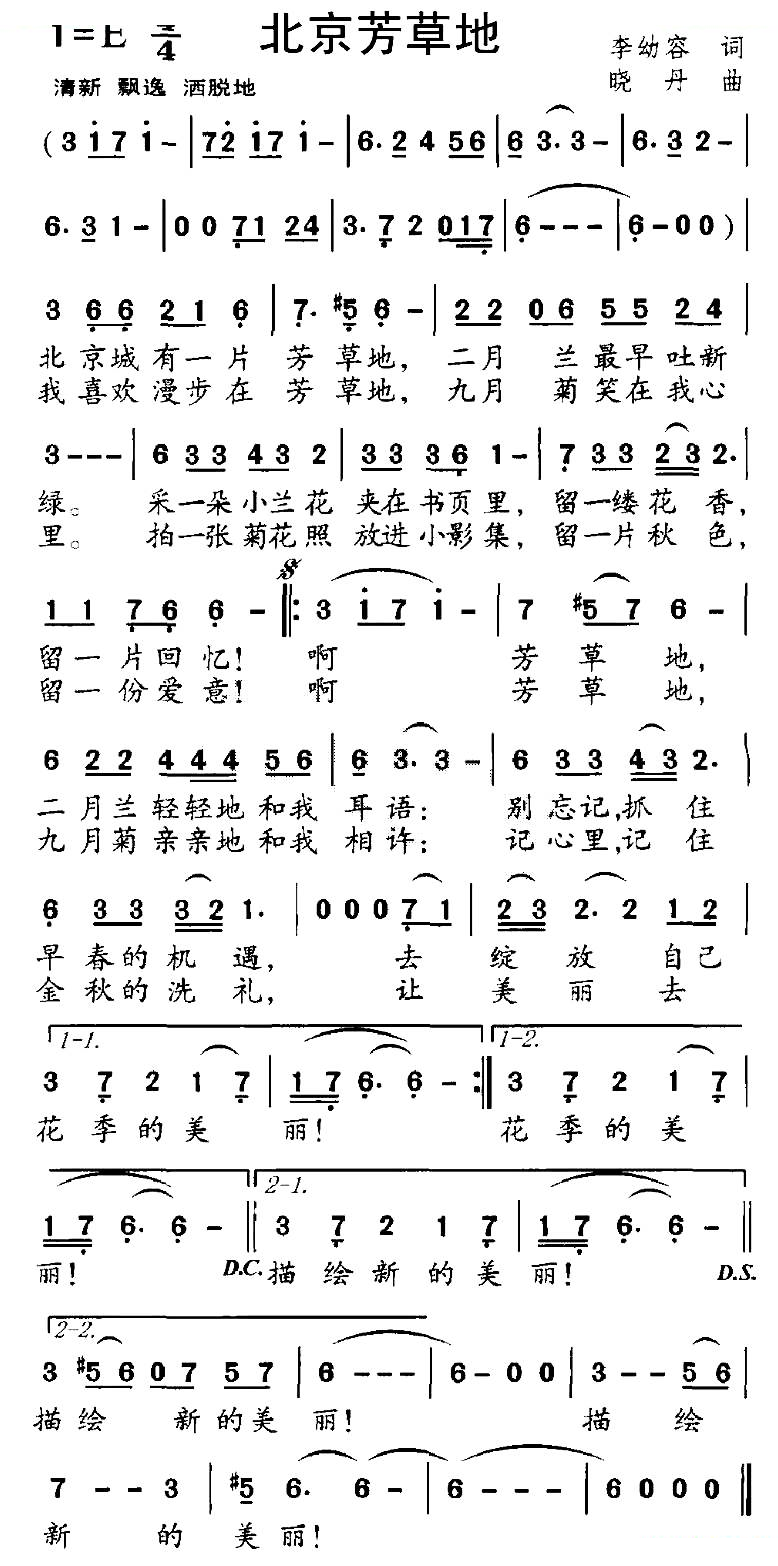 北京芳草地
李幼容 词
清新 飘逸 洒脱地
晓丹 曲
(3 1 7 1 - | 7 2 1 7 1 - | 6. 2 4 5 6 | 6 3. 3 - | 6. 3 2 - |
6. 3 1 - | 0 0 7 1 2 4 | 3. 7 2 0 1 7 | 6 - - - | 6 - 0 0 )
3 6 6 2 1 6 | 7. #5 6 - | 2 2 0 6 5 5 2 4 |
北京城有一片 芳草地, 二月 兰最早吐新
我喜欢漫步在 芳草地, 九月 菊笑在我心
3 - - - | 6 3 3 4 3 2 | 3 3 3 6 1 - | 7 3 3 2 3 2. |
绿。 采一朵小兰花 夹在书页里, 留一缕花香,
里。 拍一张菊花照 放进小影集, 留一片秋色,
1 1 7 6 6 - ‖: 3 1 7 1 - | 7 #5 7 6 - |
留一片回忆! 啊 芳草地,
留一份爱意! 啊 芳草地,
6 2 2 4 4 4 5 6 | 6 3. 3 - | 6 3 3 4 3 2. |
二月兰轻轻地和我 耳语: 别忘记,抓住
九月菊亲亲地和我 相许: 记心里,记住
6 3 3 3 2 1. | 0 0 0 7 1 | 2 3 2. 2 1 2 |
早春的机遇, 去绽放自己
金秋的洗礼, 让美丽去
1-1. 1-2.
3 7 2 1 7 | 1 7 6. 6 - :‖ 3 7 2 1 7 |
花季的美 丽! 花季的美
2-1.
1 7 6. 6 - ‖ 3 7 2 1 7 | 1 7 6. 6 - ‖
丽! D.C. 描绘新的美丽! D.S.
2-2.
3 #5 6 0 7 5 7 | 6 - - - | 6 - 0 0 | 3 - - 5 6 |
描绘 新的美丽! 描绘
7 - - 3 | #5 6. 6 - | 6 - - - | 6 0 0 0 ‖
新 的 美丽!